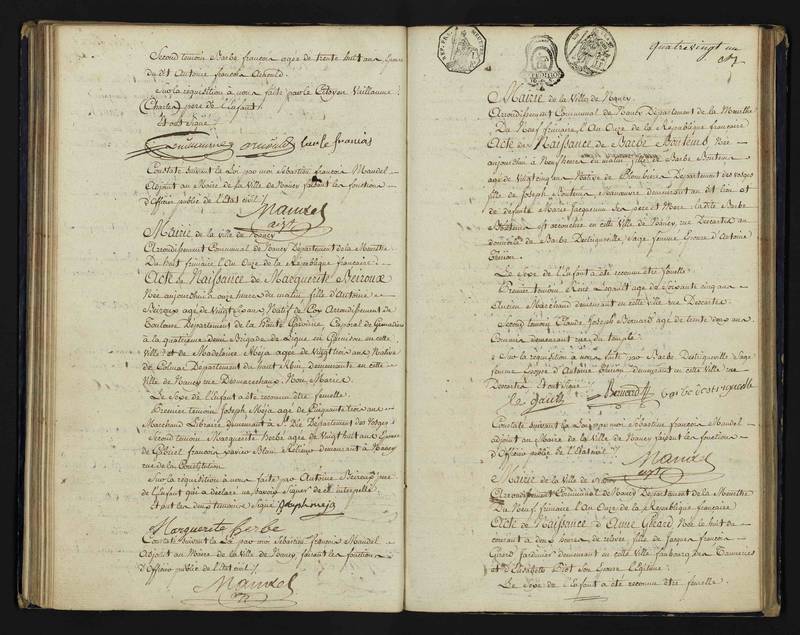 Second temoin Barbe francois agée de trente huit ans Epouse
du dit Antoine francois
Sur la réquisition à nous faite par le Citoyen Vuillaume
(Charles) pere de l'Enfant
Et ont Signé
Charle francois
Constaté suivant la Loi par moi Sébastien francois Mandel
Adjoint au Maire de la Ville de Nancy faisant les fonctions
d'Officier public de l'Etat civil
Mandel
adjt
Mairie de la Ville de Nancy
Arrondissement Communal de Nancy Département de la Meurthe
Du huit frimaire l'An Onze de la République francaise
Acte de Naissance de Marguerite Beiroux
Née aujourd'hui à onze heures du matin fille d'Antoine
Beiroux agé de Vingt ans Natif de Arrondissement de
Toulouse Département de la haute Garonne, Caporal de Grenadiers
à la quatrieme demi Brigade de Ligne en Garnison en cette
Ville et de Madelaine Méja agée de Vingt trois ans Native
de Colmar Département du haut Rhin, demeurante en cette
Ville de Nancy rue Desmarechaux Non Mariée
Le Sexe de l'Enfant a été reconnu être femelle
Premier temoin Joseph Méja agé de Cinquante trois ans
Marchand Libraire demeurant à St Dié Département des Vosges
Second temoin Marguerite Berbe agée de Vingt huit ans Epouse
de Gabriel francois xavier Blau Relieur demeurant à Nancy
rue de la Constitution
Sur la réquisition à nous faite par Antoine Beiroux pere
de l'Enfant qui a déclaré ne savoir signer de ce interpellé
Et ont les deux temoins Signé Joseph meja
Marguerite Berbe
Constaté suivant la Loi par moi Sébastien francois Mandel
Adjoint au Maire de la Ville de Nancy faisant les fonctions
d'Officier public de l'Etat civil
Mandel
Quatre vingt un
Mairie de la Ville de Nancy
Arrondissement Communal de Nancy Département de la Meurthe
Du Neuf frimaire l'An Onze de la République francaise
Acte de Naissance de Barbe Bouteux Née
aujourd'hui à Neuf heures du matin fille de Barbe Bouteux
agée de Vingt cinq ans Native de Plombiere Département des Vosges
fille de Joseph Bouteux Manoeuvre demeurant au dit lieu et
de defunte Marie Jacquemin Ses pere et Mere. laditte Barbe
Bouteux est accouchée en cette Ville de Nancy, rue Descartes au
domicille de Barbe Destriquenelle Sage femme Epouse d'Antoine
Le Sexe de l'Enfant a été reconnu être femelle
Premier temoin René Legault agé de Soixante cinq ans
Ancien Marchand demeurant en cette ville rue Descartes
Second temoin Claude Joseph Bernard agé de trente deux ans
Commis demeurant rue du temple
Sur la réquisition à nous faite par Barbe Destriquenelle Sage
femme Epouse d'Antoine demeurant en cette Ville rue
Descartes Et ont Signé
Bernard
Constaté suivant la Loi par moi Sébastien francois Mandel
adjoint au Maire de la Ville de Nancy faisant les fonctions
d'Officier public de l'Etat civil
Mandel
adjt
Mairie de la Ville de Nancy
Arrondissement Communal de Nancy Département de la Meurthe
Du Neuf frimaire l'An Onze de la République francaise
Acte de Naissance d'Anne Girard Née le huit du
courant à dix heures de relevée, fille de Jacques francois
Girard Jardinier demeurant en cette Ville faubourg des Tanneries
et d'Elisabeth Son Epouse Légitime
Le Sexe de l'Enfant a été reconnu être femelle